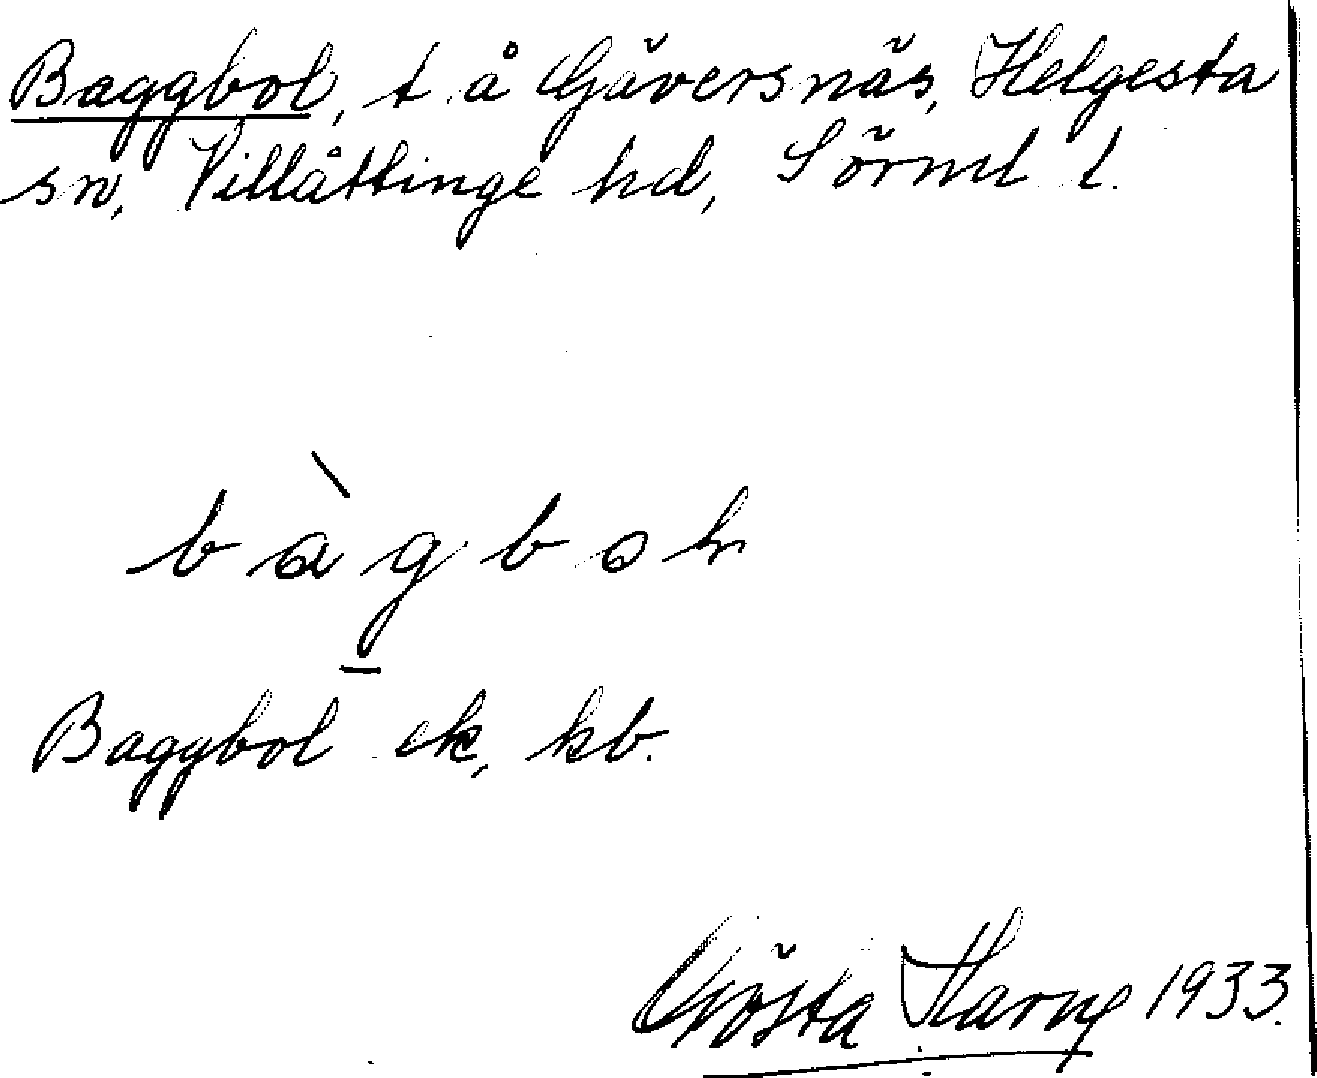 Baggbol, t å Gäversnäs, Helgesta
sn, Villåttinge hd, Sörml l.
bàgbol
Baggbol ek, kb.
Gösta Harng 1933.